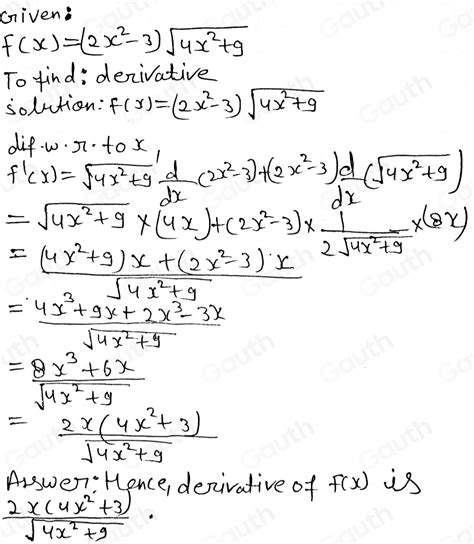 Given:
f(x)=(2x²-3)√4x²+9
To find: derivative
solution: f(x)=(2x²-3)√4x²+9
dif.w.r.to x
f'(x)=√4x²+9 d/dx(2x²-3)+(2x²-3)d/dx(√4x²+9)
=√4x²+9 ×(4x)+(2x²-3)×1/2√4x²+9 ×(8x)
=(4x²+9)x+(2x²-3).x/√4x²+9
=4x³+9x+2x³-3x/√4x²+9
=8x³+6x/√4x²+9
=2x(4x²+3)/√4x²+9
Answer: Hence, derivative of f(x) is
2x(4x²+3)/√4x²+9.